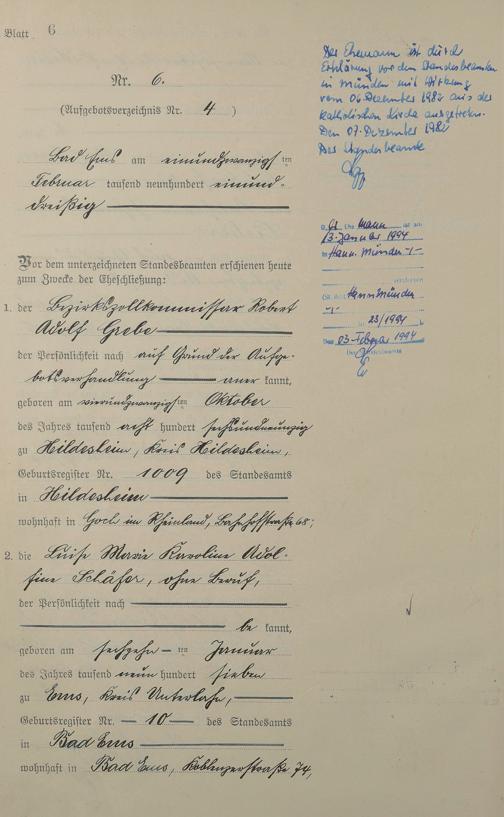 Blatt 6
Nr. 6.
(Aufgebotsverzeichnis Nr. 4)
Bad Ems am einundzwanzigsten
Februar tausend neunhundert einund-
dreißig
Vor dem unterzeichneten Standesbeamten erschienen heute
zum Zwecke der Eheschließung:
1. der Bezirkszollkommissar Robert
Adolf Grebe
der Persönlichkeit nach auf Grund der Aufge-
botsverhandlung aner kannt,
geboren am vierundzwanzigsten Oktober
des Jahres tausend acht hundert sechsundneunzig
zu Hildesheim, Kreis Hildesheim,
Geburtsregister Nr. 1009 des Standesamts
in Hildesheim
wohnhaft in Goch im Rheinland, Bahnhofstraße 68;
2. die Luise Marie Karoline Adol-
fine Schäfer, ohne Beruf,
der Persönlichkeit nach
be kannt,
geboren am sechzehn ten Januar
des Jahres tausend neun hundert sieben
zu Ems, Kreis Unterlahn,
Geburtsregister Nr. 10 des Standesamts
in Bad Ems
wohnhaft in Bad Ems, Koblenzerstraße 74,
Der Ehemann ist durch
Erklärung vor dem Standesbeamten
in Münden mit Wirkung
vom 06. Dezember 1982 aus der
katholischen Kirche ausgetreten.
Den 07. Dezember 1982
Der Standesbeamte
Mann ist am
13. Januar 1994
in Hann. Münden
verstorben
Hann. Münden
23/1994
Den 03. Februar 1994
Der Standesbeamte